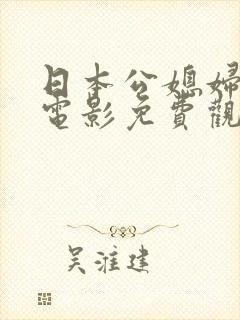 日本公媳婦
電影免費觀
吴淮建